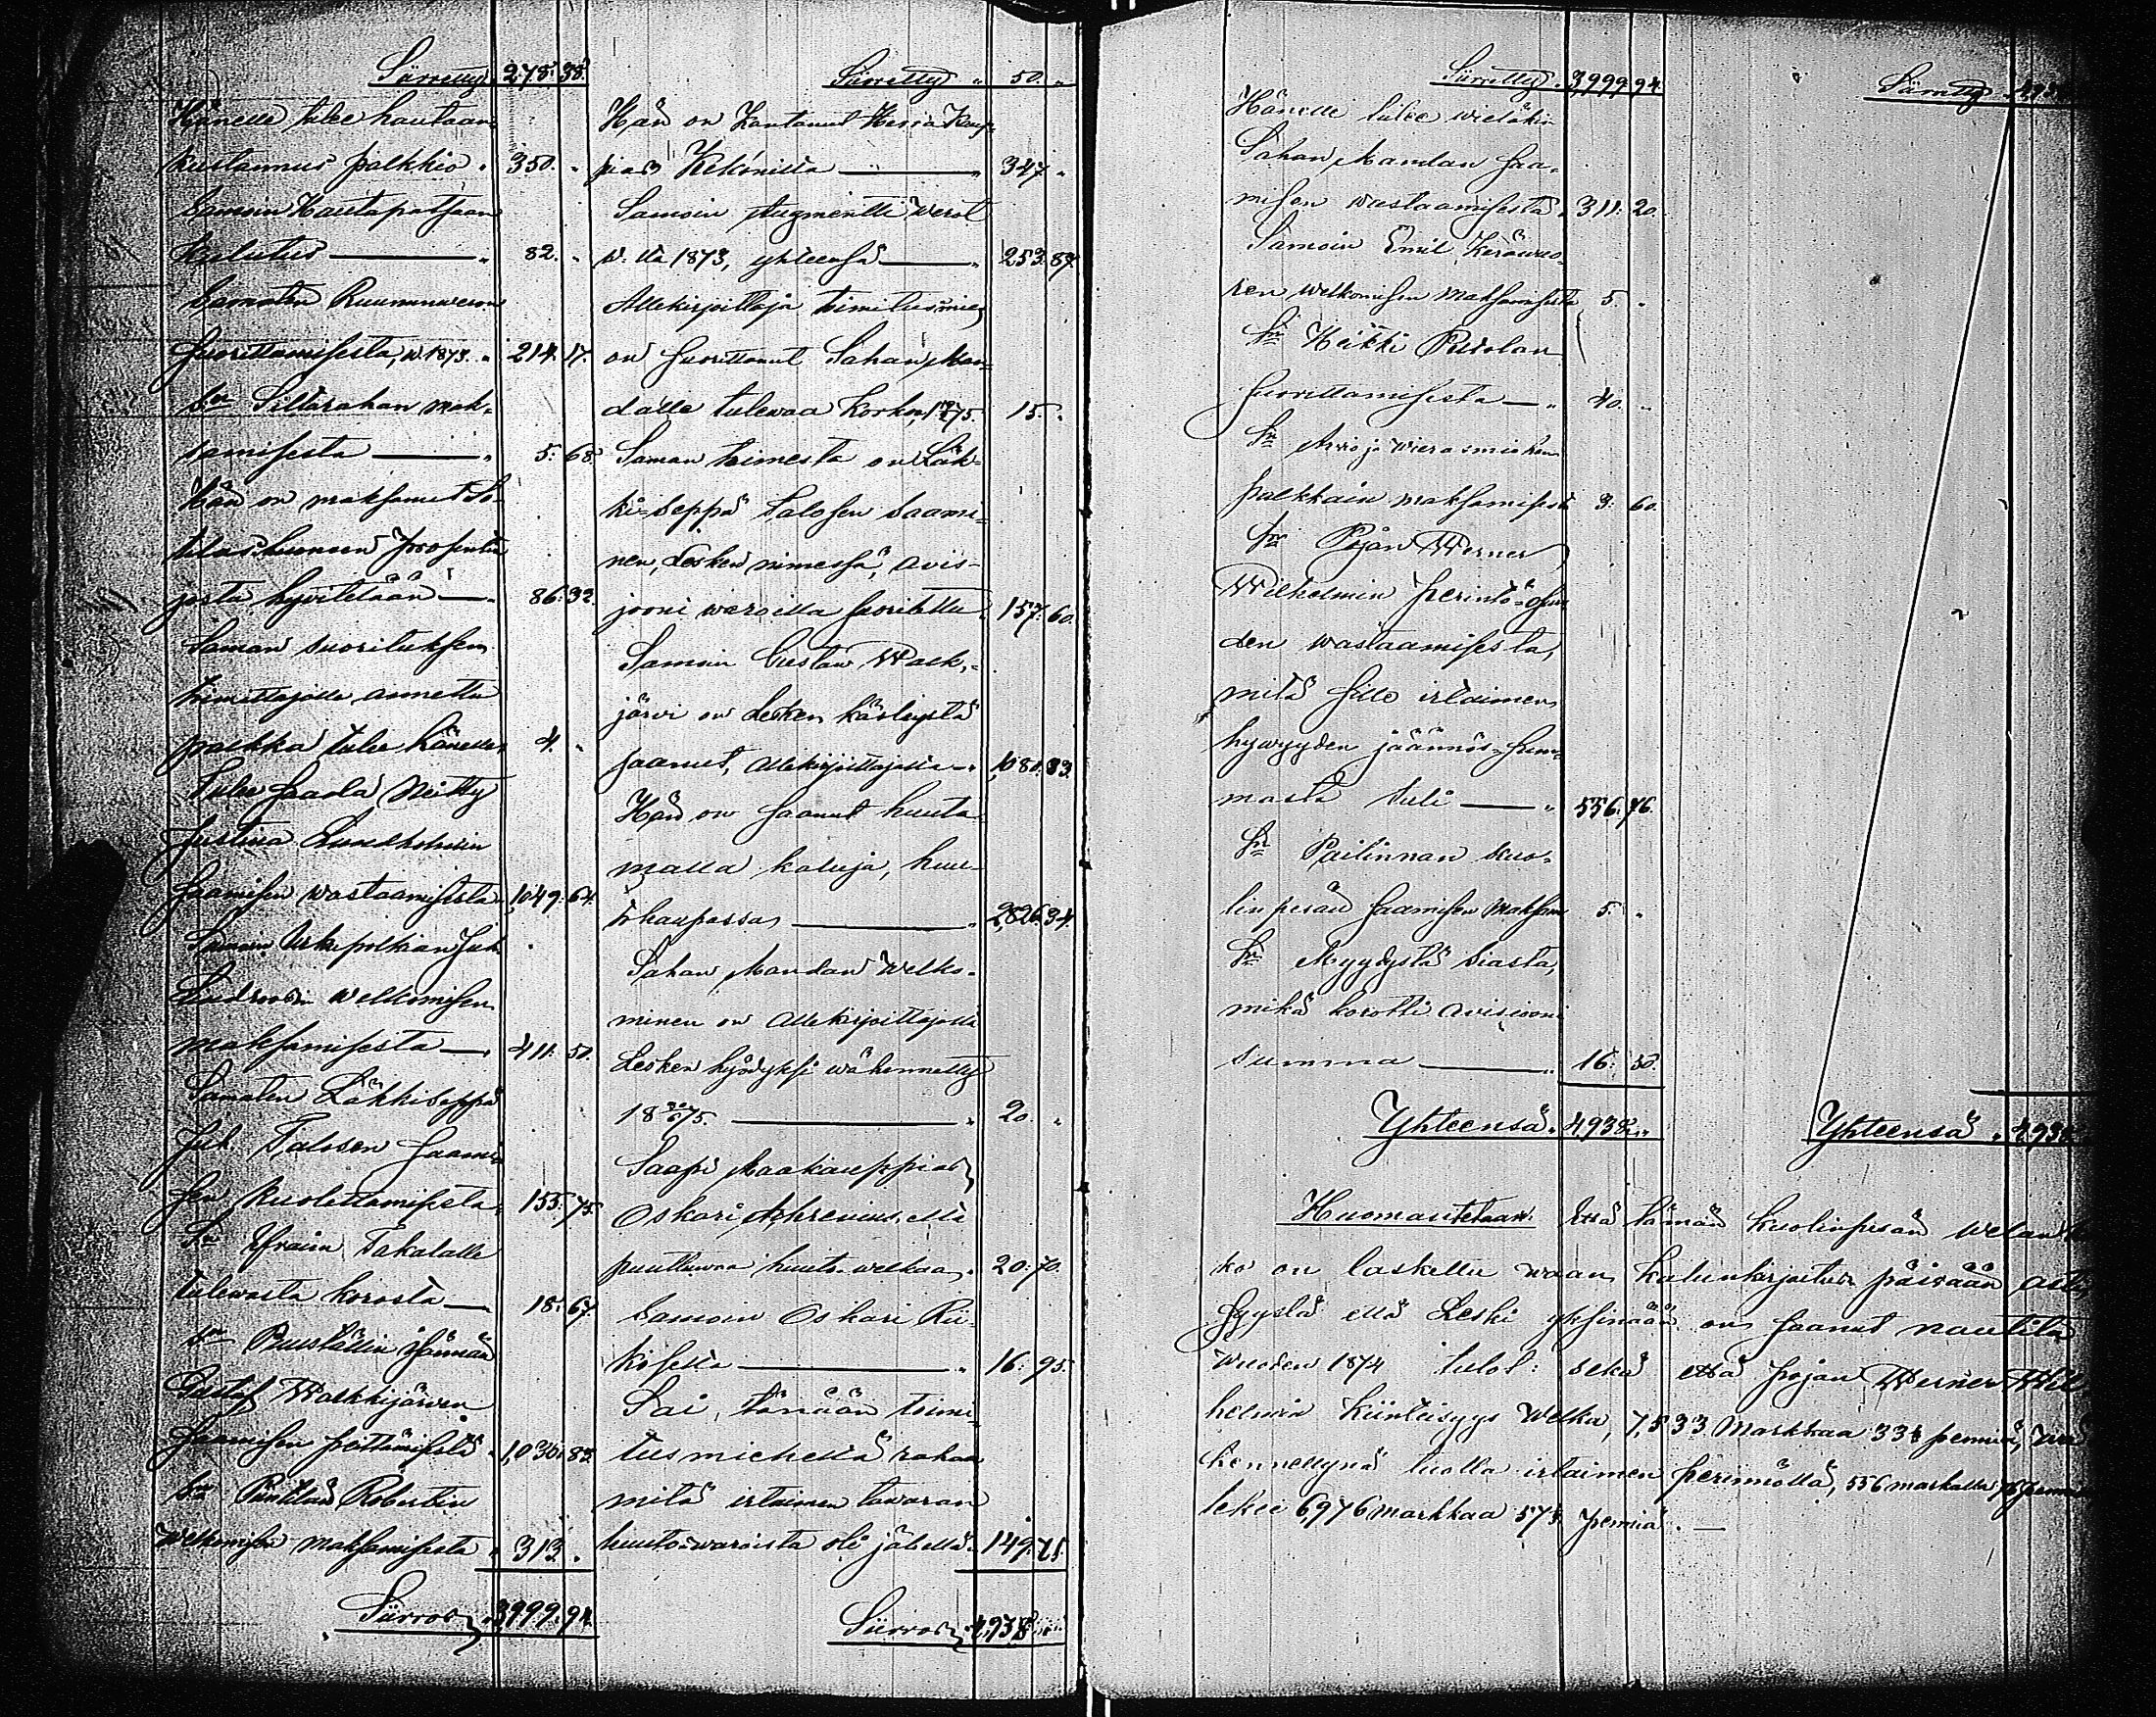 Siirretty 278: 38.
Hänelle tulee hautaan-
kustannus palkkio " 350. "
Samoin Hautapatsaan
kulutus — " 82. "
Samaten Ruununveron
suorittamisesta, v. 1873 " 214. 17.
Sn Siltarahan mak-
samisesta — " 5: 68.
Hän on maksanut
josta hyvitetään — " 86: 32.
Saman suorituksen
toimittajalle annettu
palkka tulee hänelle 4. "
Tulee saada Neitty
Justina Lundholmin
saamisen vastaamisesta " 1,049: 64.
Samoin
welkomisen
maksamisesta — " 411. 50.
Samaten Läkkiseppä
Juh Talosen saami-
sen kuolettamisesta " 155: 75.
Sn Efraim Takalalle
tulevasta korosta — 18: 67.
Sn Puuställin isännän
Gustaf Walkkijärven
saamisen peittämisestä " 1,030: 83.
Sn Robertin
Welkomisen maksamisesta " 313. "
Siirros " 3,999. 94.
Siirretty " 50. "
Hän on kantanut Herra Kaup-
pias Kekoniilta — " 347. "
Samoin Augmentti Werot
v:lta 1873, yhteensä — " 253: 87.
Allekirjoittaja toimitusmies
on suorittanut Sahan Man-
dalle tulewaa Korkoa, 1875. 15. "
Saman toimesta on Läk-
ki-seppä Talosen saami-
nen, Lesken nimessä, avis-
jooni waroilla suoritettu " 157: 60.
Samoin Gustaw Walk-
järvi on Lesken käskystä
saanut, Allekirjoittajalta — " 1,080. 83.
Hän on saanut huuta-
malla kaluja, huu-
tokaupassa — " 2,826. 34.
Sahan Mandan Welko-
minen on Allekirjoittajalta
Lesken hyödyksi wähennetty
1875. — " 20. "
Saapi Maakauppias
Oskari Ahreniuselta
puuttuwaa huuto-welkaa " 20: 70.
Samoin Oskari Rii-
koselta — " 16: 95.
Sai, tänään toimi-
tusmieheltä rahaa
mitä irtaimen tawaran
huuto-waroista oli jälellä " 149: 71.
Siirros " 4,938. "
Siirretty " 3,999 94.
Hänelle tulee wieläkin
Sahan Mandan saa-
misen wastaamisesta " 311: 20.
Samoin Emil Keräwuo-
ren welkomisen maksamisesta 5. "
Sn Heikki Puisolan
suorittamisesta — " 40. "
Sn Arvio ja Wierasmiesten
palkkain maksamisesta 3: 60.
Sn Pojan Werner
Wilhelmin perintö-osuu-
den wastaamisesta,
mitä sille irtaimen
hywyyden jäännös-sum-
masta tuli — " 556. 76.
Sn Pailinnan kuo-
linpesän saamisen maksam 5. "
Sn Myydystä Siasta,
mikä korotti avisiooni
summa — " 16: 50.
Yhteensä " 4,938. "
Siirretty " 4,938
Yhteensä " 4,938.
Huomautetaan. Että tämän kuolinpesän welan
ko on laskettu waan kalunkirjoitus päiwään asti
syystä että Leski yksinään on saanut nautita
wuoden 1874 tulot: sekä että pojan Werner Wil-
helmin Kiinteisyys Welka, 7,533 Markkaa 33⅓ penniä, wä-
hennettynä tuolla irtaimen perinnöllä, 556 markalla 76 pennillä
tekee 6,976 markkaa 57⅓ penniä. —